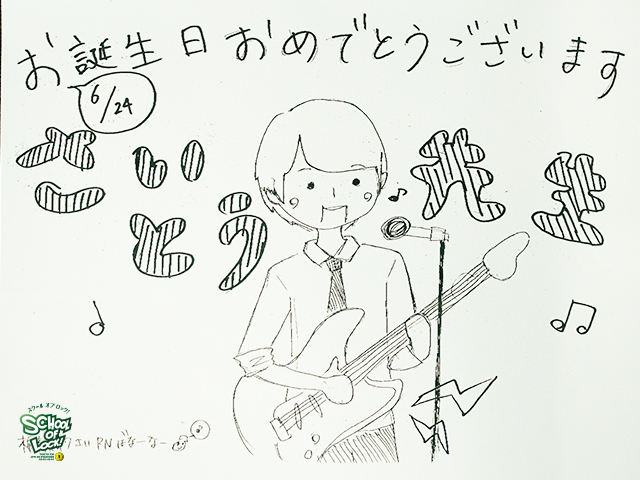 お誕生日おめでとうございます
6/24
さい
とう
スクール オブ ロック!
SCHOOL
OF
LOCK!
さい RNばなーなー